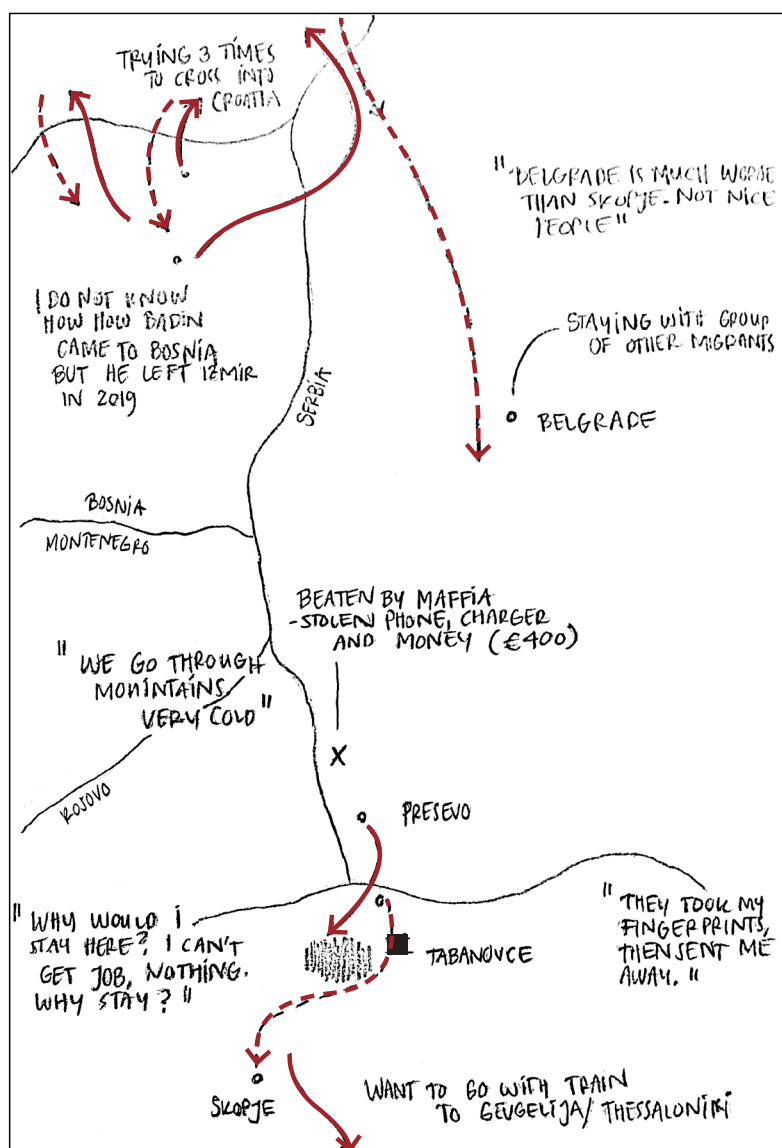 TRYING 3 TIMES
TO CROSS INTO
CROATIA
"BELGRADE IS MUCH WORSE
THAN SKOPJE. NOT NICE
PEOPLE"
I DO NOT KNOW
HOW HOW BADIN
CAME TO BOSNIA
BUT HE LEFT IZMIR
IN 2019
STAYING WITH GROUP
OF OTHER MIGRANTS
SERBIA
BELGRADE
BOSNIA
MONTENEGRO
BEATEN BY MAFFIA
-STOLEN PHONE, CHARGER
AND MONEY (€400)
"WE GO THROUGH
MOUINTAINS
VERY COLD"
X
KOSOVO
PRESEVO
"WHY WOULD I
STAY HERE? I CAN'T
GET JOB, NOTHING.
WHY STAY?"
"THEY TOOK MY
FINGERPRINTS,
THEN SENT ME
AWAY."
TABANOVCE
SKOPJE
WANT TO GO WITH TRAIN
TO GEVGELIJA/THESSALONIKI